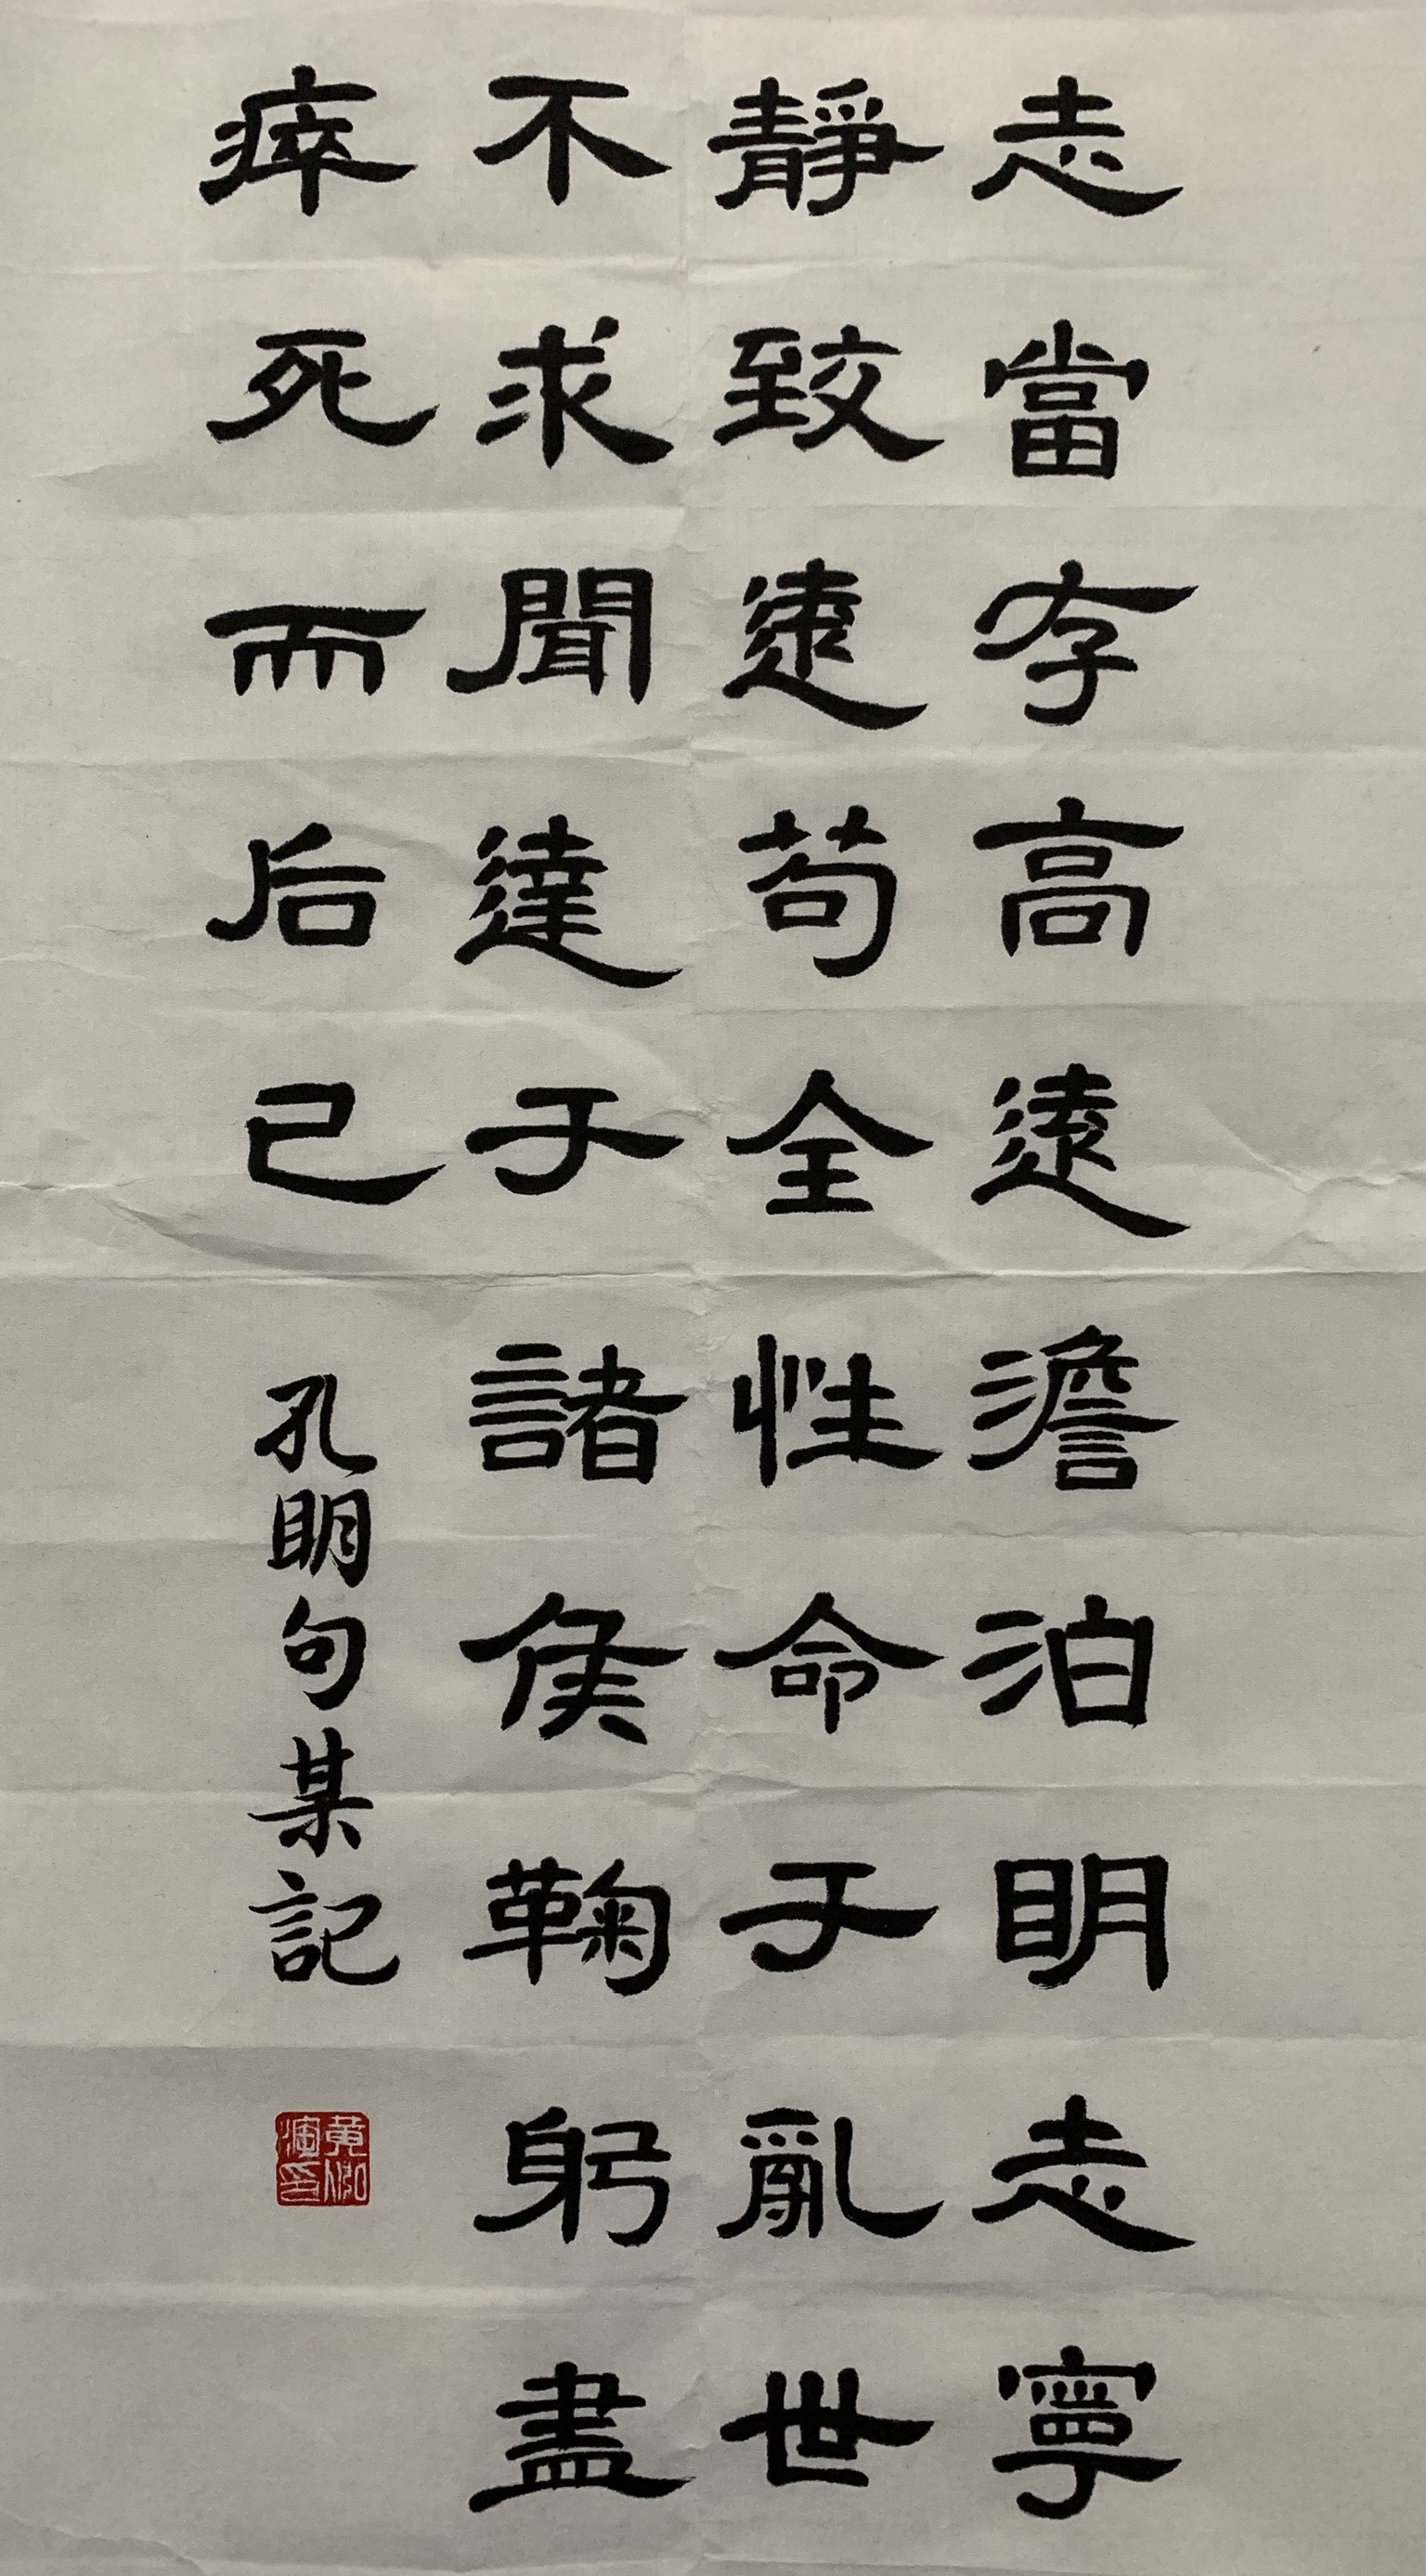 志當存高遠澹泊明志寧
靜致遠苟全性命于亂世
不求聞達于諸侯鞠躬盡
瘁死而后已
孔明句某記